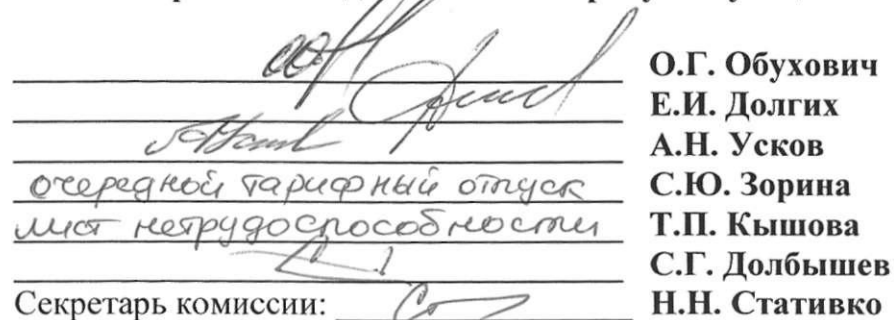 О.Г. Обухович
Е.И. Долгих
А.Н. Усков
очередной тарифный отпуск С.Ю. Зорина
лист нетрудоспособности Т.П. Кышова
С.Г. Долбышев
Секретарь комиссии: Н.Н. Стативко